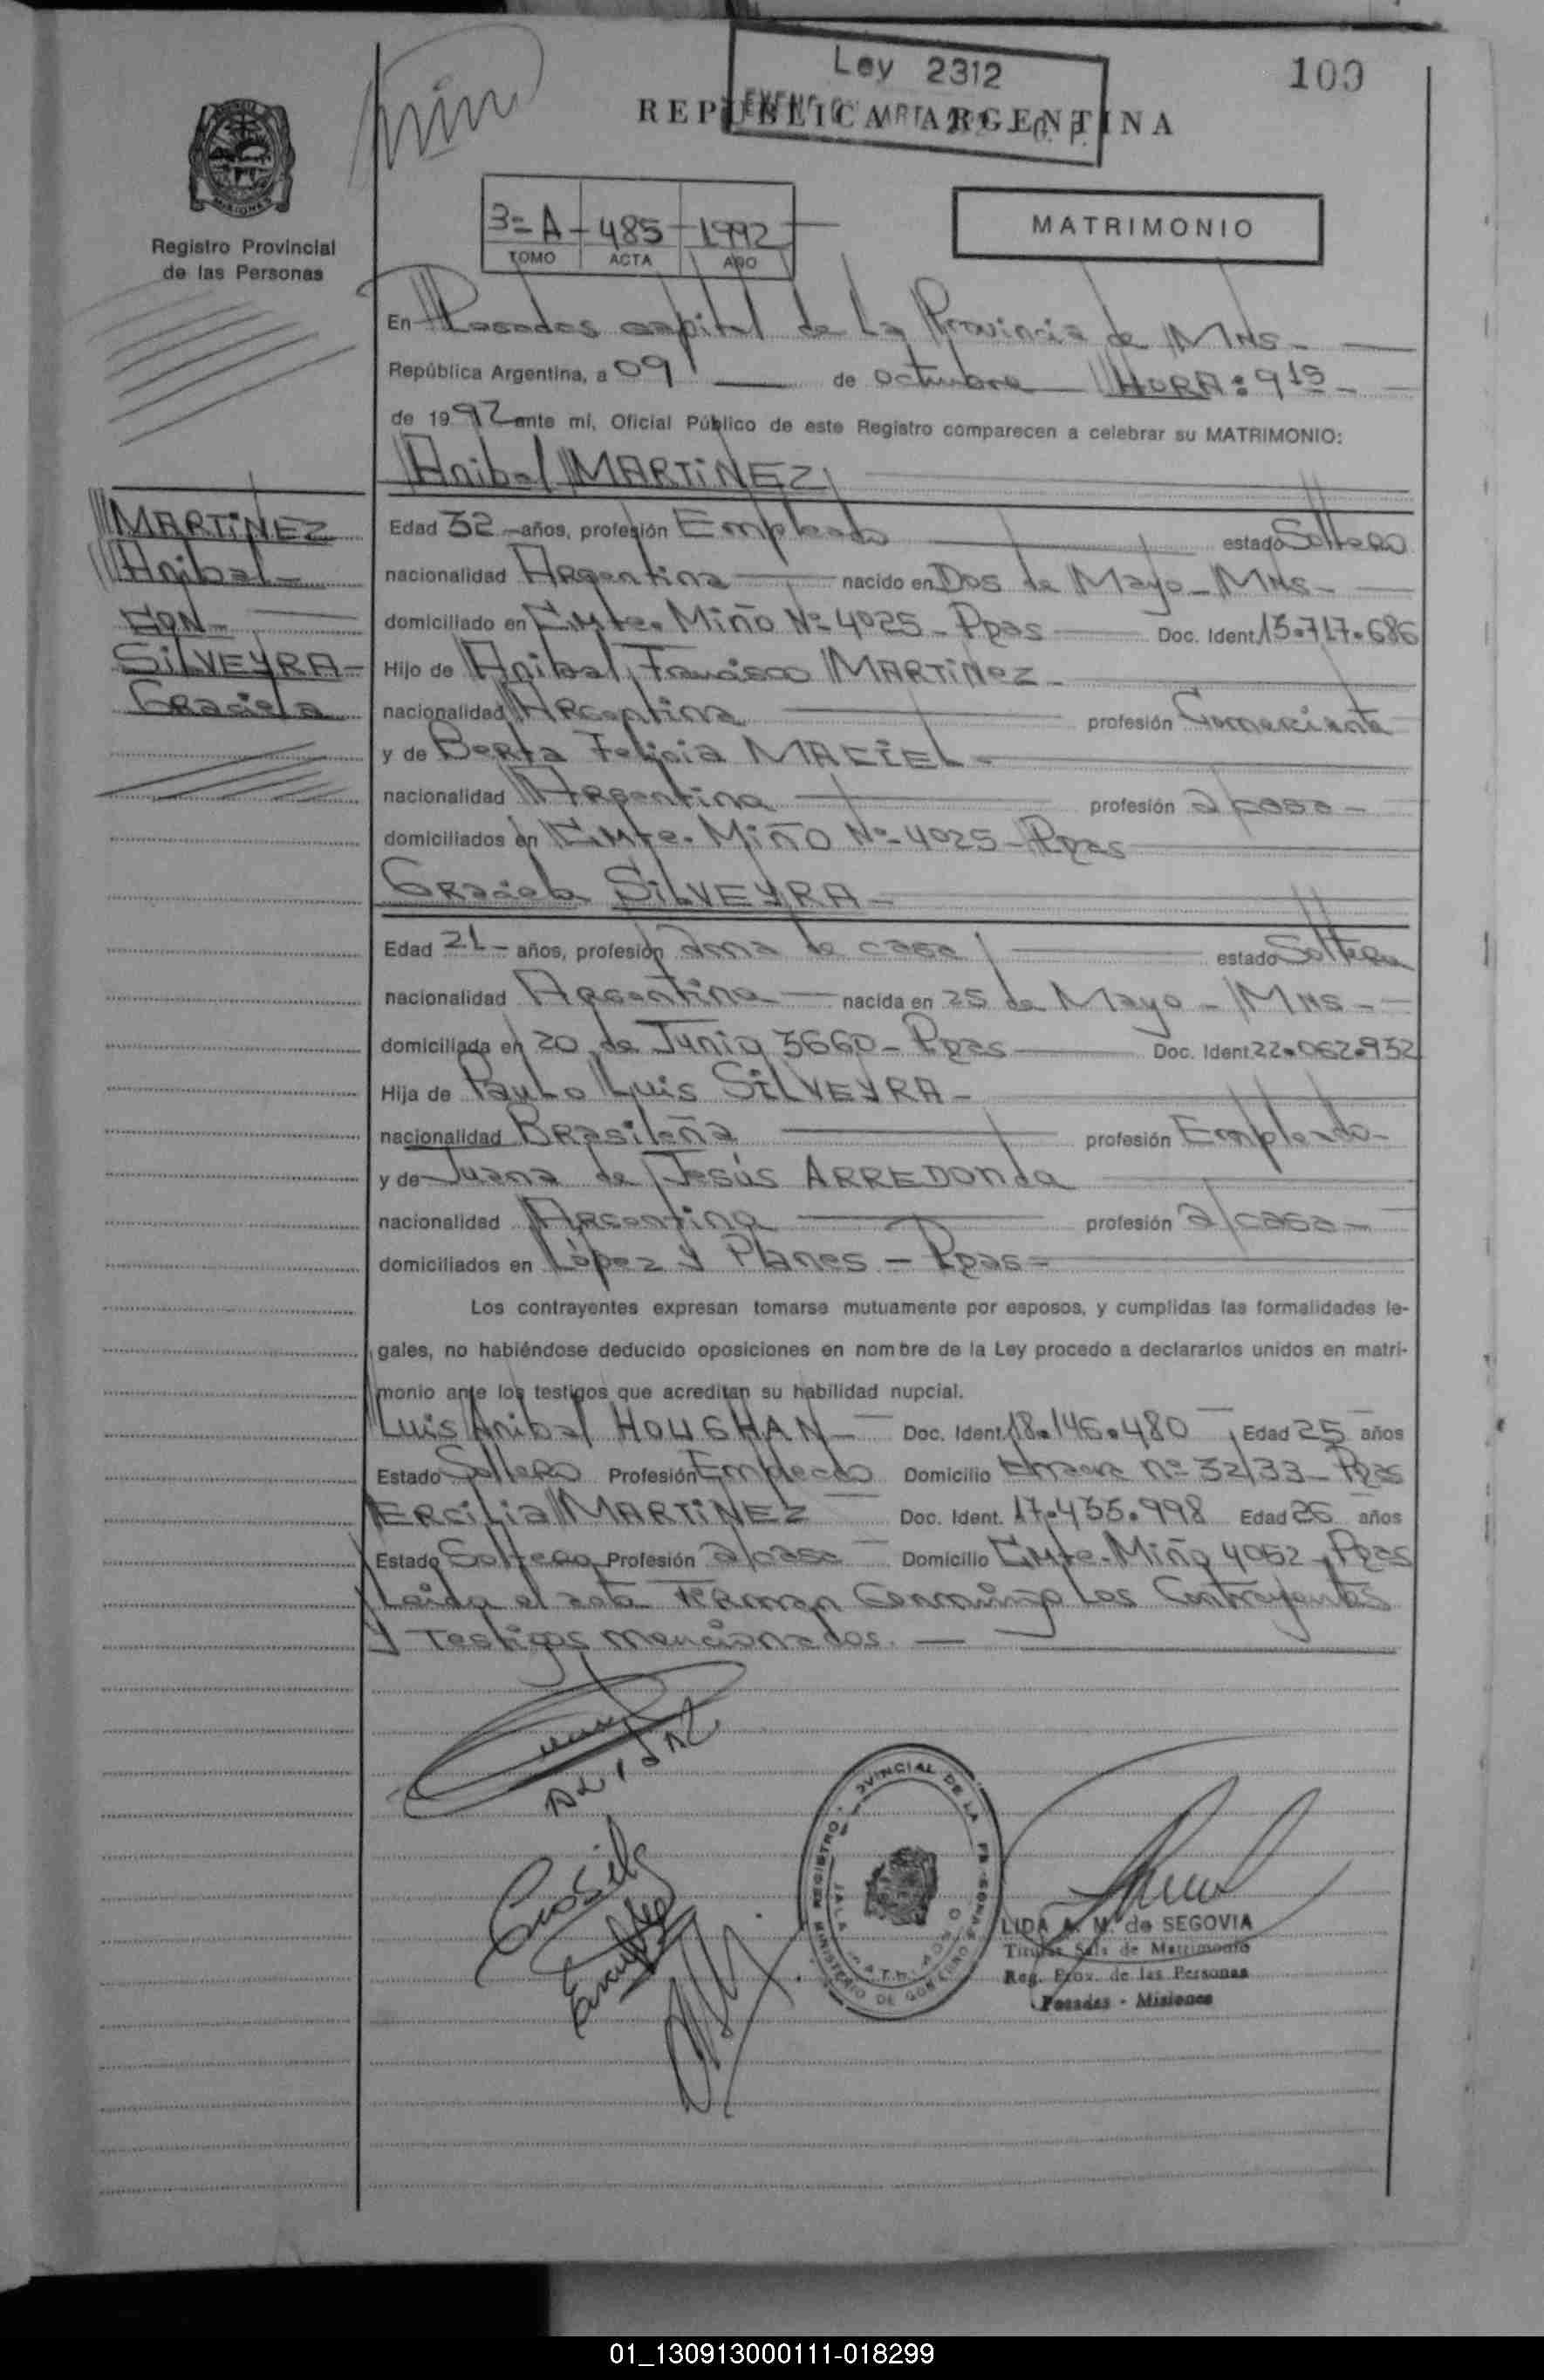 Ley 2312
109
REPUBLICA ARGENTINA
3=A - 485 - 1992
TOMO ACTA AÑO
MATRIMONIO
MISIONES
Registro Provincial
de las Personas
En Posadas capital de La Provincia de MNS -
República Argentina, a 09 de octubre HORA: 9 15 -
de 1992 ante mí, Oficial Público de este Registro comparecen a celebrar su MATRIMONIO:
Anibal MARTINEZ
MARTINEZ
Anibal -
CON -
SILVEYRA -
Graciela
Edad 32 - años, profesión Empleado estado Soltero
nacionalidad Argentina nacido en Dos de Mayo - MNS -
domiciliado en Cmte. Miño Nº 4025 - Ppas Doc. Ident. 13.717.686
Hijo de Anibal Francisco MARTINEZ -
nacionalidad Argentina profesión Comerciante
y de Berta Felicia MACIEL -
nacionalidad Argentina profesión a/casa -
domiciliados en Cmte. Miño Nº 4025 - Ppas
Graciela SILVEYRA -
Edad 21 - años, profesión ama de casa estado Soltera
nacionalidad Argentina nacida en 25 de Mayo - MNS -
domiciliada en 20 de Junio 3660 - Ppas Doc. Ident. 22.062.932
Hija de Paulo Luis SILVEYRA -
nacionalidad Brasileña profesión Empleado -
y de Juana de Jesús ARREDONDA
nacionalidad Argentina profesión a/casa -
domiciliados en López y Planes - Ppas -
Los contrayentes expresan tomarse mutuamente por esposos, y cumplidas las formalidades le-
gales, no habiéndose deducido oposiciones en nombre de la Ley procedo a declararlos unidos en matri-
monio ante los testigos que acreditan su habilidad nupcial.
Luis Anibal HOUGHAN - Doc. Ident. 18.146.480 Edad 25 años
Estado Soltero Profesión Empleado Domicilio nº 32/33 - Ppas
ERCILIA MARTINEZ Doc. Ident. 17.435.998 Edad 26 años
Estado Soltera Profesión a/casa Domicilio Cmte. Miño 4052 - Ppas
Leida el acta Firman Conmigo Los Contrayentes
y Testigos mencionados. -
REGISTRO PROVINCIAL DE LAS PERSONAS
MINISTERIO DE GOBIERNO
LIDA A. M. de SEGOVIA
Titular Sala de Matrimonio
Reg. Prov. de las Personas
Posadas - Misiones
01_130913000111-018299